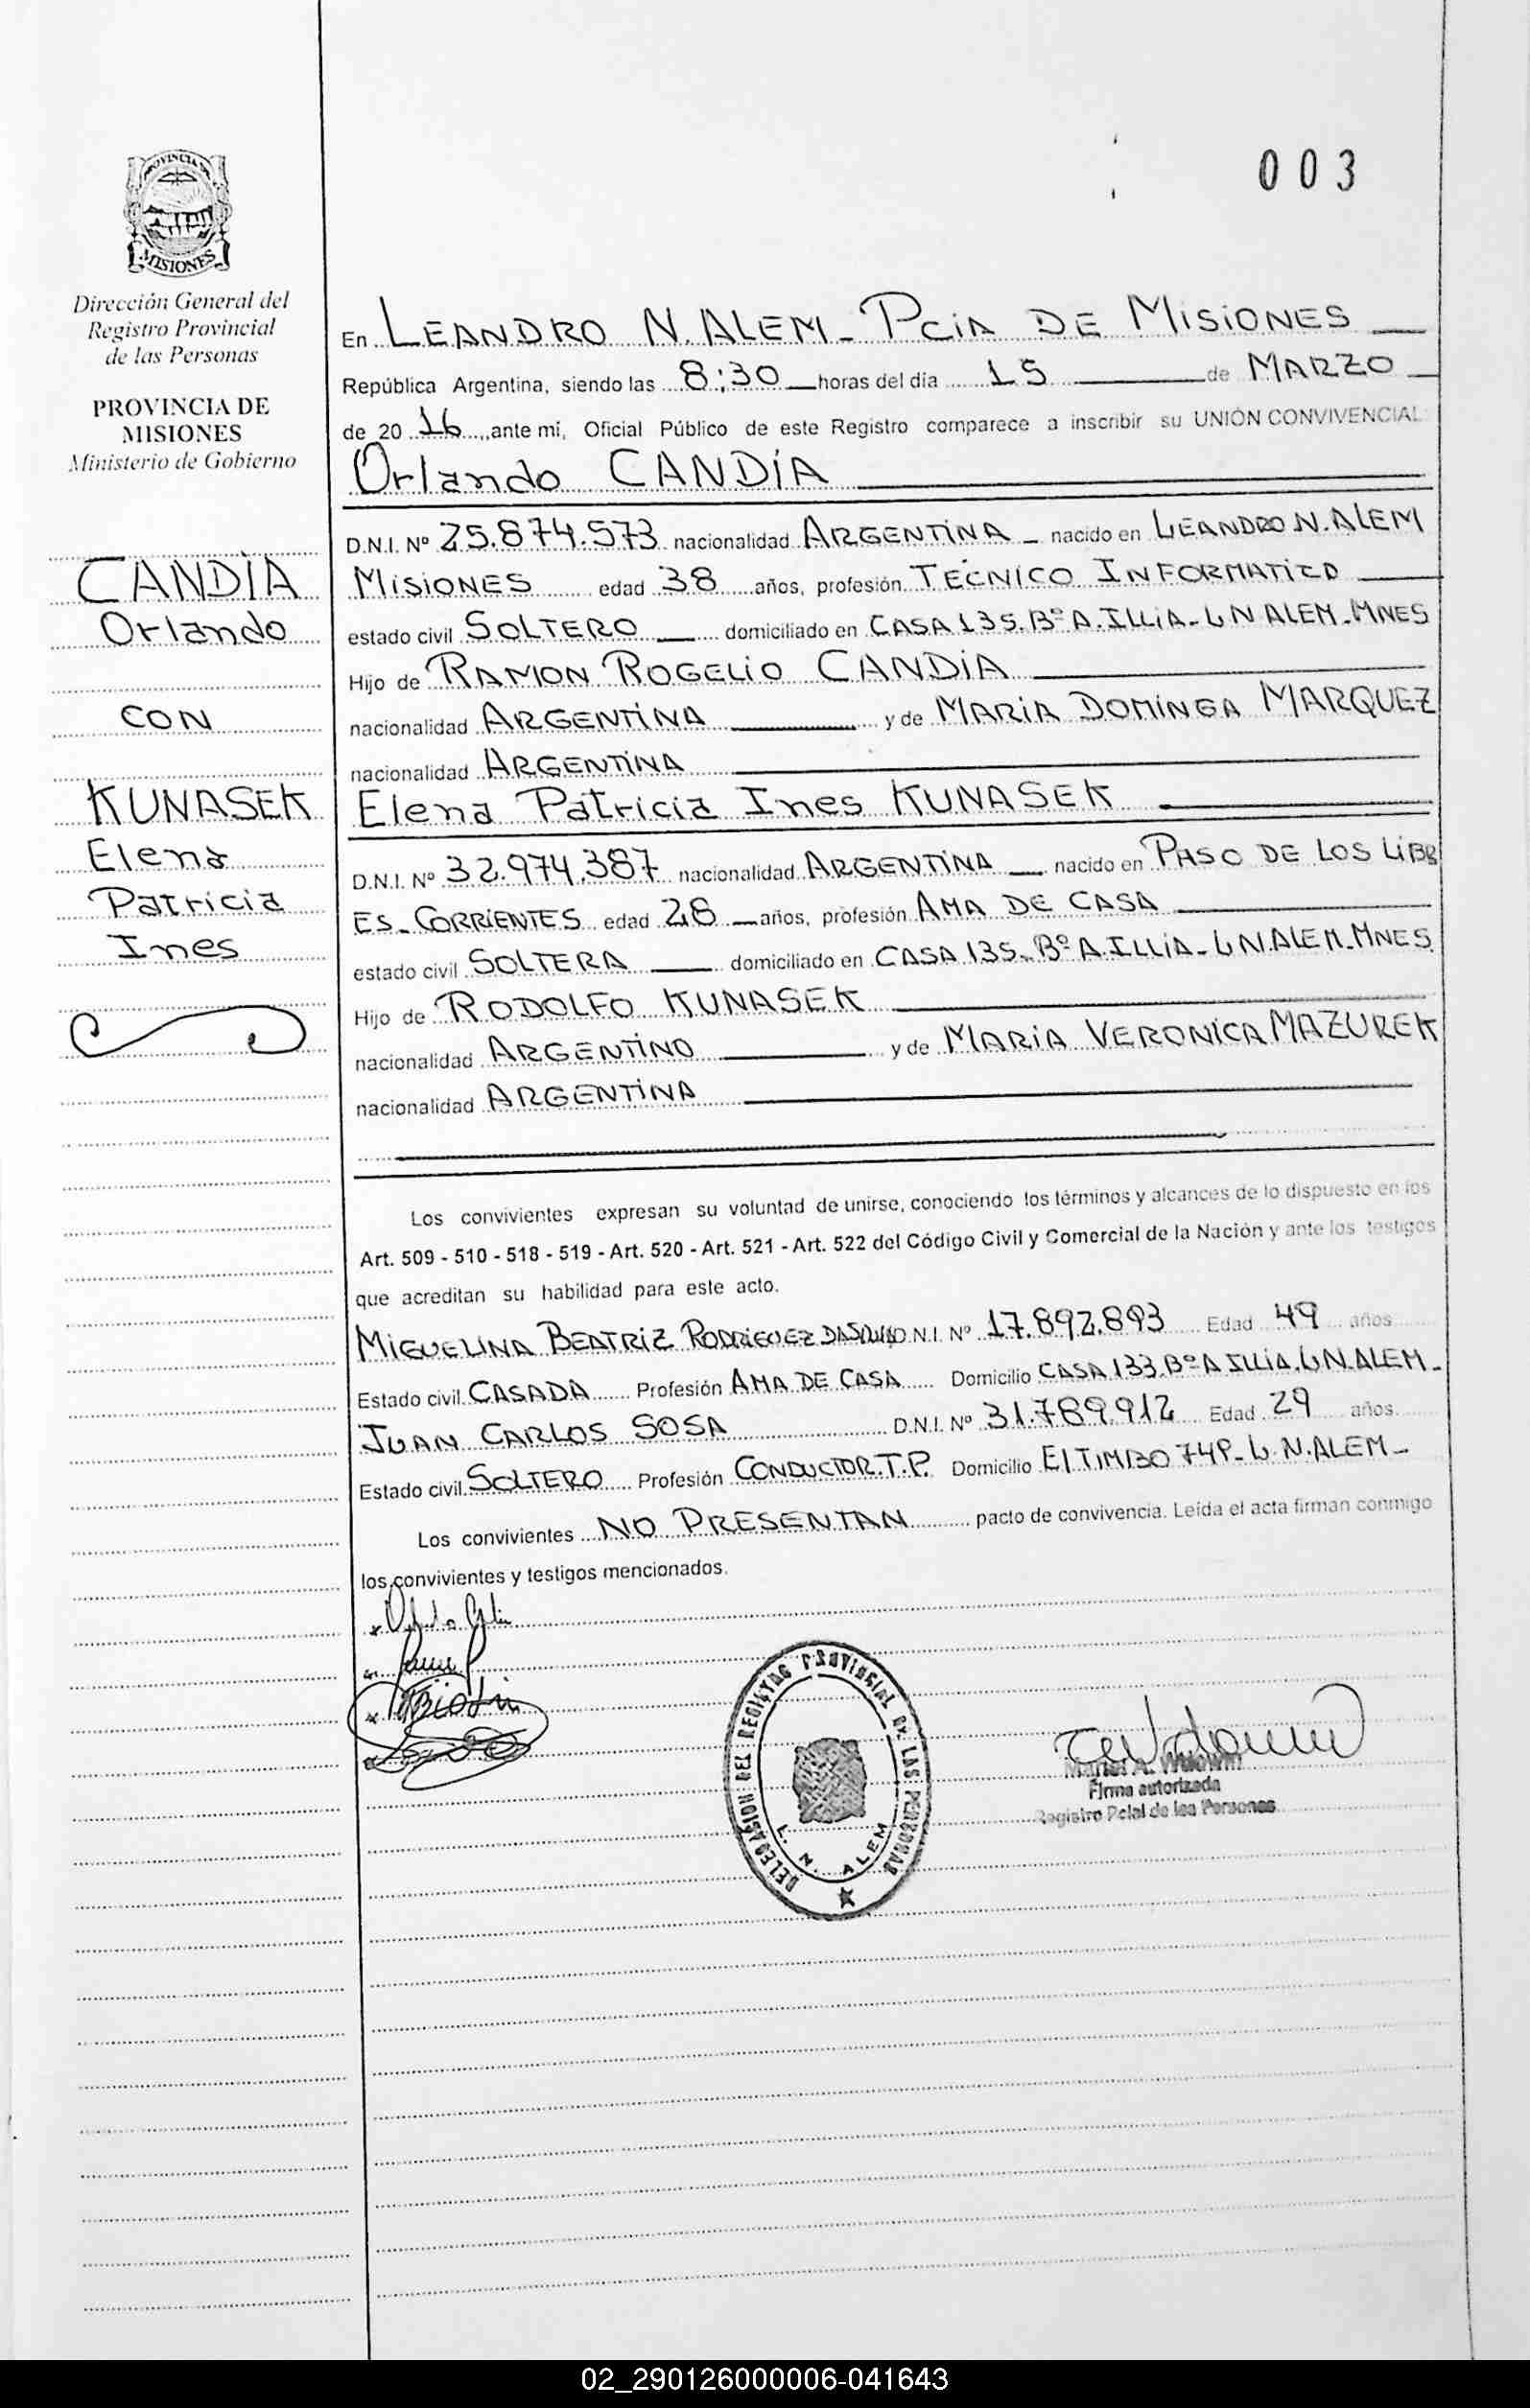 003
PROVINCIA DE
MISIONES
Dirección General del
Registro Provincial
de las Personas
PROVINCIA DE
MISIONES
Ministerio de Gobierno
CANDIA
Orlando
CON
KUNASEK
Elena
Patricia
Ines
En LEANDRO N. ALEM - Pcia DE MISIONES
República Argentina, siendo las 8:30 horas del día 15 de MARZO
de 20 16, ante mi, Oficial Público de este Registro comparece a inscribir su UNIÓN CONVIVENCIAL:
Orlando CANDIA
D.N.I. Nº 25.874.573 nacionalidad ARGENTINA - nacido en LEANDRO N. ALEM
MISIONES edad 38 años, profesión TECNICO INFORMATICO
estado civil SOLTERO domiciliado en CASA 135. Bº A. ILLIA - L N ALEM - MNES
Hijo de RAMON ROGELIO CANDIA
nacionalidad ARGENTINA y de MARIA DOMINGA MARQUEZ
nacionalidad ARGENTINA
Elena Patricia Ines KUNASEK
D.N.I. Nº 32.974.387 nacionalidad ARGENTINA nacido en PASO DE LOS LIBR
ES - CORRIENTES edad 28 años, profesión AMA DE CASA
estado civil SOLTERA domiciliado en CASA 135 - Bº A. ILLIA - L N. ALEM - MNES
Hijo de RODOLFO KUNASEK
nacionalidad ARGENTINO y de MARIA VERONICA MAZUREK
nacionalidad ARGENTINA
Los convivientes expresan su voluntad de unirse, conociendo los términos y alcances de lo dispuesto en los
Art. 509 - 510 - 518 - 519 - Art. 520 - Art. 521 - Art. 522 del Código Civil y Comercial de la Nación y ante los testigos
que acreditan su habilidad para este acto.
MIGUELINA BEATRIZ RODRIGUEZ D.N.I. Nº 17.892.893 Edad 49 años
Estado civil CASADA Profesión AMA DE CASA Domicilio CASA 133. Bº A ILLIA. L N. ALEM -
JUAN CARLOS SOSA D.N.I. Nº 31.789.912 Edad 29 años.
Estado civil SOLTERO Profesión CONDUCTOR. T.P. Domicilio El TIMBO 749 - L. N. ALEM -
Los convivientes NO PRESENTAN pacto de convivencia. Leída el acta firman conmigo
los convivientes y testigos mencionados.
DELEGACION DEL REGISTRO PROVINCIAL DE LAS PERSONAS
L. N. ALEM
Firma autorizada
Registro Pcial de las Personas
02_290126000006-041643